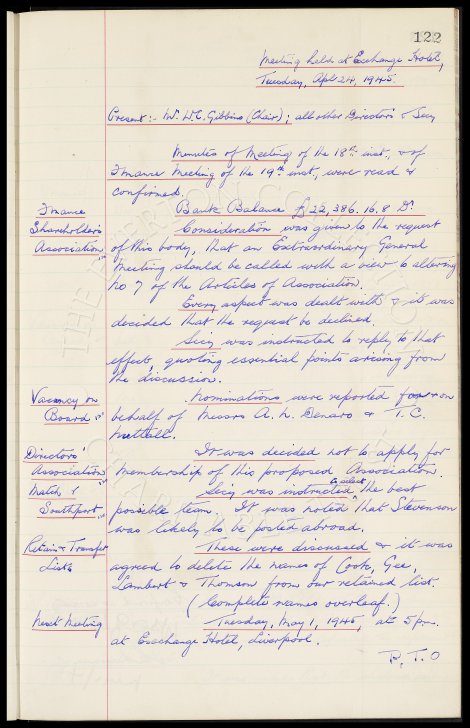 122
Meeting held at Exchange Hotel,
Tuesday, Apl 24, 1945.
Present:- Mr. W.C. Gibbins (Chair); all other Directors & Secy
Minutes of Meeting of the 18th inst, & of
Finance Meeting of the 19th inst, were read &
confirmed.
Finance
Bank Balance £22,386.16.8 Dr.
Shareholders
Association
Consideration was given to the request
of this body, that an Extraordinary General
Meeting should be called with a view to altering
No 7 of the Articles of Association.
Every aspect was dealt with & it was
decided that the request be declined.
Secy was instructed to reply to that
effect, quoting essential points arising from
the discussion.
Vacancy on
Board
Nominations were reported for on
behalf of Messrs A. L. Denaro & T. C.
Nuttall.
Directors'
Association
It was decided not to apply for
membership of this proposed Association.
Match v
Southport
Secy was instructed to select the best
possible team. It was noted that Stevenson
was likely to be posted abroad.
Retain & Transfer
Lists
These were discussed & it was
agreed to delete the names of Cook, Gee,
Lambert & Thomson from our retained list.
(Complete names overleaf.)
Next Meeting
Tuesday, May 1, 1945, at 5pm.
at Exchange Hotel, Liverpool.
P.T.O